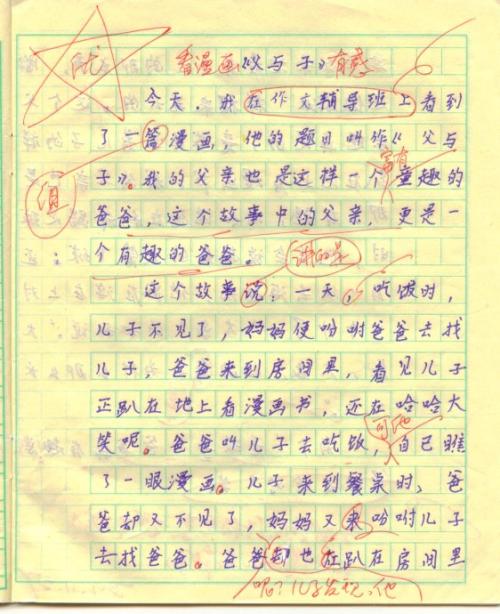 优
看漫画《父与子》有感
今天,我在作文辅导班上看到
了一篇漫画,他的题目叫作《父与
富有
子》。我的父亲也是这样一个童趣的
值
爸爸,这个故事中的父亲,更是一
个有趣的爸爸。
讲的是
这个故事说:一天,吃饭时,
儿子不见了,妈妈便吩咐爸爸去找
儿子,爸爸来到房间里,看见儿子
正趴在地上看漫画书,还在哈哈大
可他
笑呢。爸爸叫儿子去吃饭,自己瞧
了一眼漫画。儿子来到餐桌时,爸
爸却又不见了,妈妈又来吩咐儿子
去找爸爸。爸爸却也在趴在房间里
呢?儿子发现,他